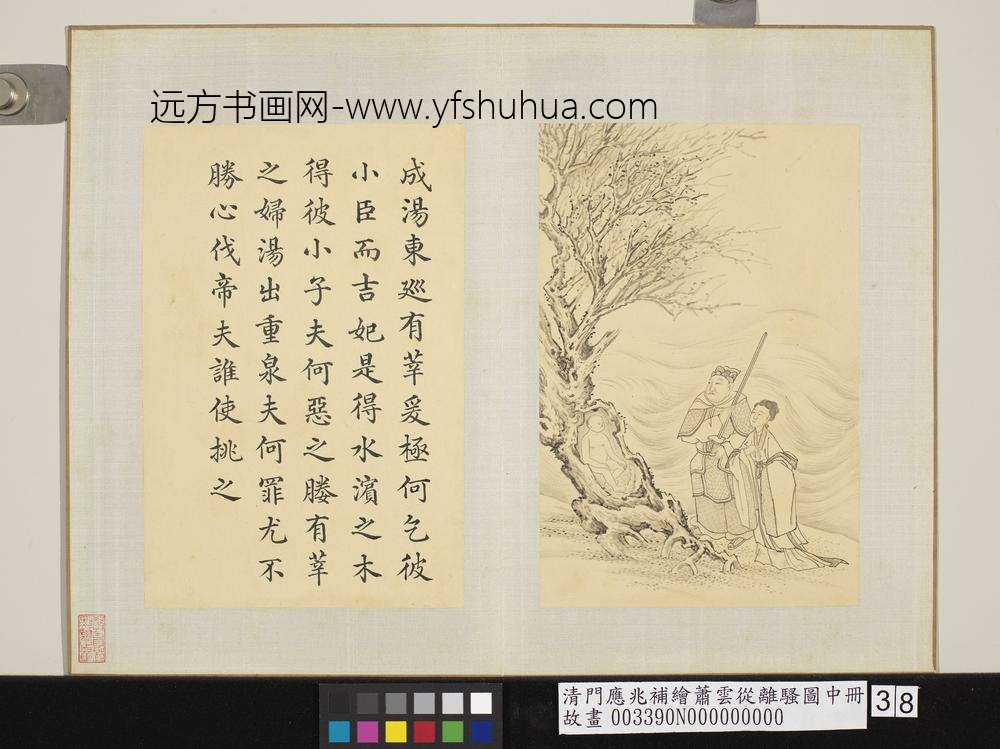 远方书画网-www.yfshuhua.com
成湯東廵有莘爰極何乞彼
小臣而吉妃是得水濱之木
得彼小子夫何惡之媵有莘
之婦湯出重泉夫何罪尤不
勝心伐帝夫誰使挑之
清門應兆補繪蕭雲從離騷圖中冊
故畫 003390N000000000
38